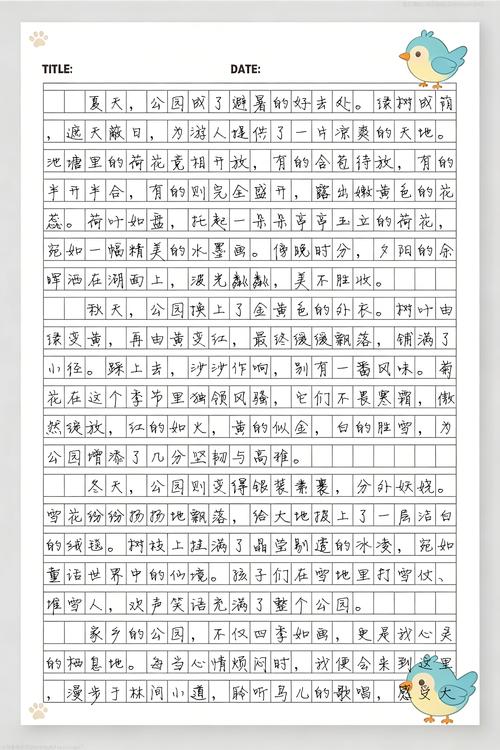 TITLE: DATE:
夏天，公园成了避暑的好去处。绿树成荫
，遮天蔽日，为游人提供了一片凉爽的天地。
池塘里的荷花竞相开放，有的含苞待放，有的
半开半合，有的则完全盛开，露出嫩黄色的花
蕊。荷叶如盘，托起一朵朵亭亭玉立的荷花，
宛如一幅精美的水墨画。傍晚时分，夕阳的余
晖洒在湖面上，波光粼粼，美不胜收。
秋天，公园换上了金黄色的外衣。树叶由
绿变黄，再由黄变红，最终缓缓飘落，铺满了
小径。踩上去，沙沙作响，别有一番风味。菊
花在这个季节里独领风骚，它们不畏寒霜，傲
然绽放，红的如火，黄的似金，白的胜雪，为
公园增添了几分坚韧与高雅。
冬天，公园则变得银装素裹，分外妖娆。
雪花纷纷扬扬地飘落，给大地披上了一层洁白
的绒毯。树枝上挂满了晶莹剔透的冰凌，宛如
童话世界中的仙境。孩子们在雪地里打雪仗、
堆雪人，欢声笑语充满了整个公园。
家乡的公园，不仅四季如画，更是我心灵
的栖息地。每当心情烦闷时，我便会来到这里
，漫步于林间小道，聆听鸟儿的歌唱，感受大